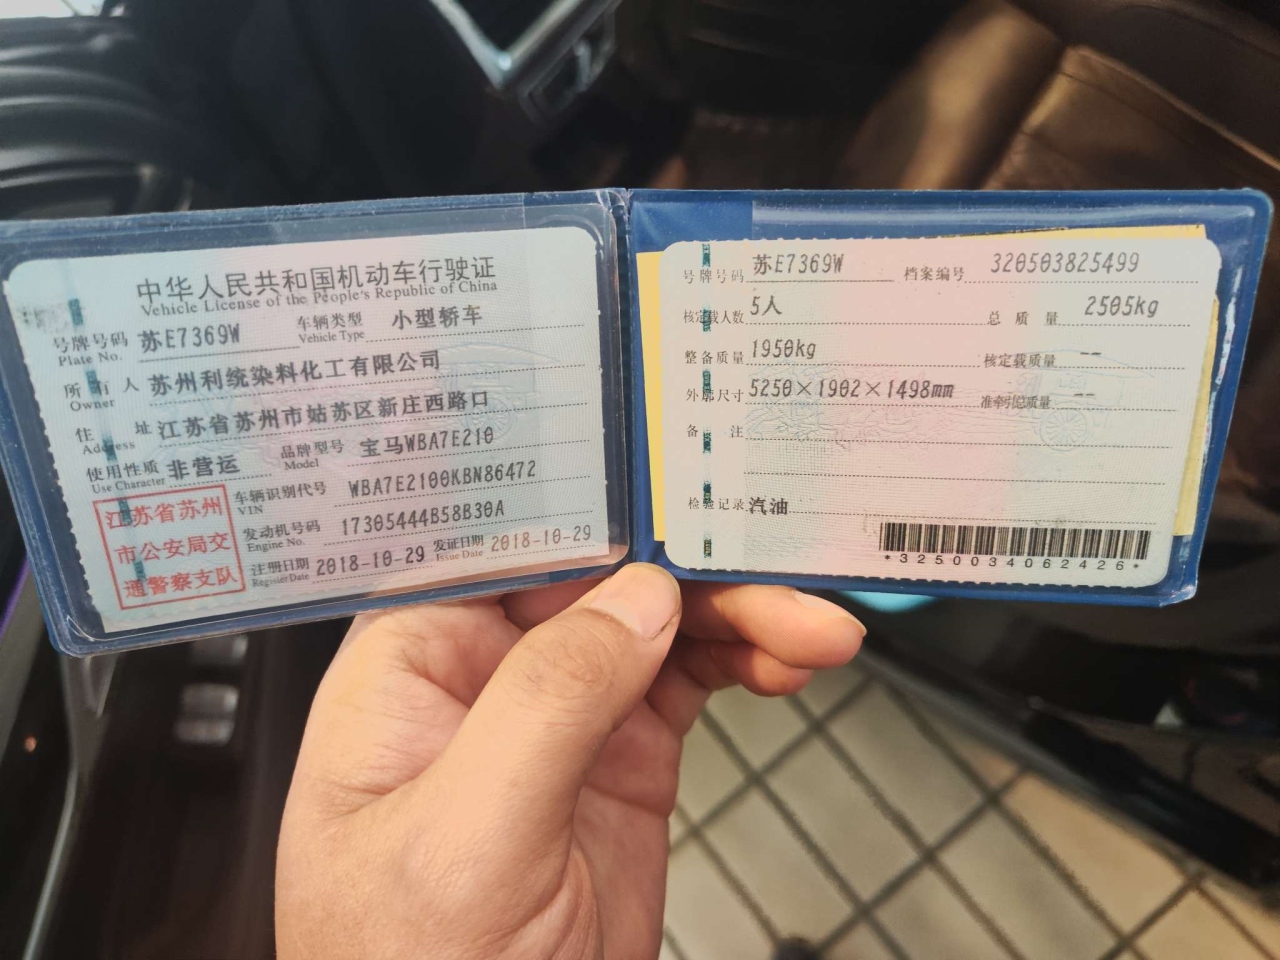 中华人民共和国机动车行驶证
Vehicle License of the People's Republic of China
号牌号码 苏E7369W 车辆类型 小型轿车
Plate No. Vehicle Type
所有人 苏州利统染料化工有限公司
Owner
住址 江苏省苏州市姑苏区新庄西路口
Address
使用性质 非营运 品牌型号 宝马WBA7E210
Use Character Model
江苏省苏州
市公安局交
通警察支队
车辆识别代号 WBA7E2100KBN86472
VIN
发动机号码 17305444B58B30A
Engine No.
注册日期 2018-10-29 发证日期 2018-10-29
Register Date Issue Date
号牌号码 苏E7369W 档案编号 320503825499
核定载人数 5人 总质量 2505kg
整备质量 1950kg 核定载质量 --
外廓尺寸 5250×1902×1498mm 准牵引总质量 --
备注
检验记录 汽油
*3250034062426*